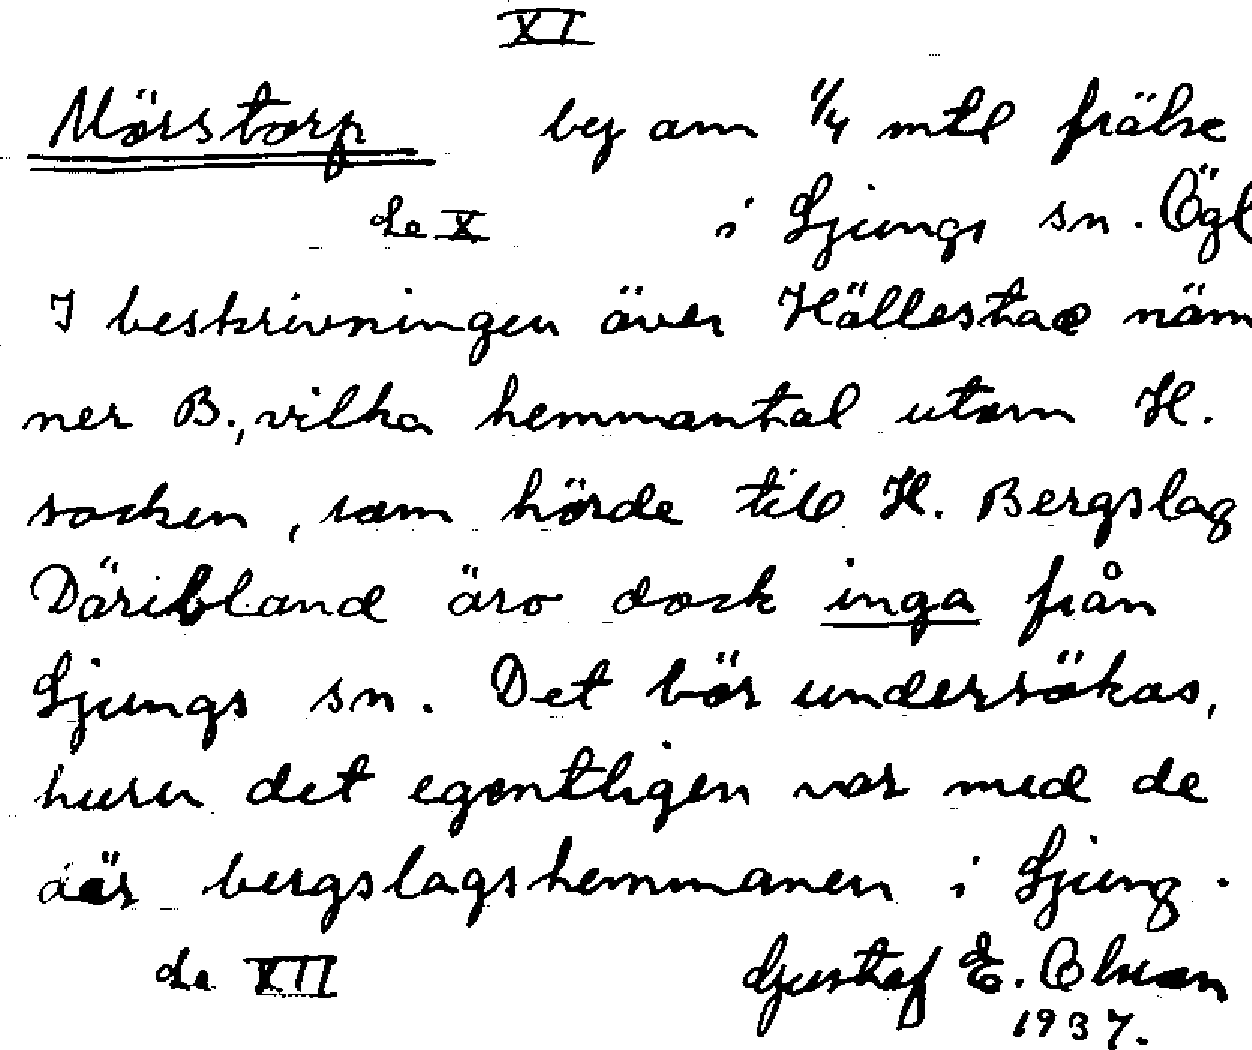 XI
Mörstorp by om 1/4 mtl frälse
i Ljungs sn. Ögl
se X
I beskrivningen över Hällestad näm
ner B., vilka hemmantal utom H.
socken, som hörde till H. Bergslag
Däribland äro dock inga från
Ljungs sn. Det bör undersökas,
huru det egentligen var med de
där bergslagshemmanen i Ljung.
se XII Gustaf E. Olsson
1937.